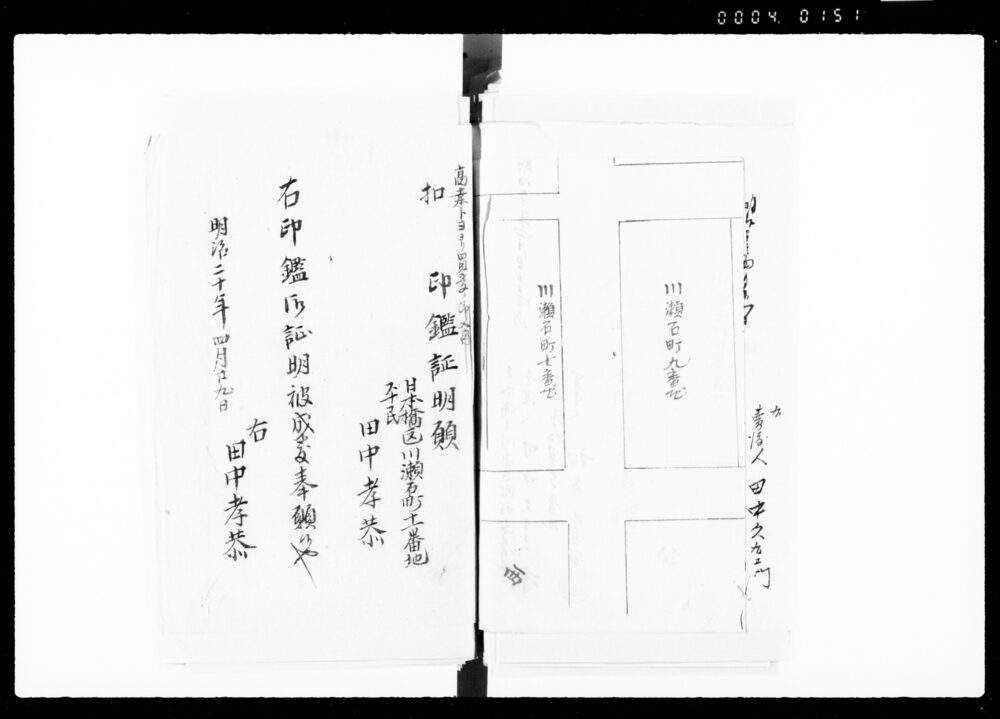 0004 0151
右
売渡人 田中久右エ門
川瀬石町九番地
川瀬石町十一番地
町
扣
印鑑証明願
日本橋区川瀬石町十一番地
平民
田中孝恭
右印鑑御証明被成度奉願候也
明治二十年四月廿九日
右
田中孝恭